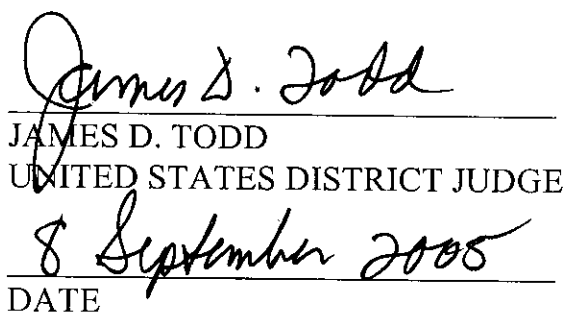 James D. Todd
JAMES D. TODD
UNITED STATES DISTRICT JUDGE
8 September 2005
DATE